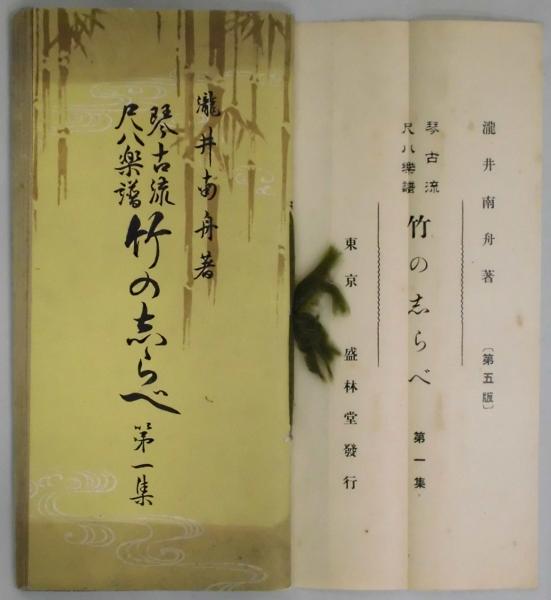 瀧井南舟著
琴古流
尺八楽譜
竹の志らべ 第一集
瀧井南舟著 〔第五版〕
琴古流
尺八樂譜
竹の志らべ 第一集
東京 盛林堂發行